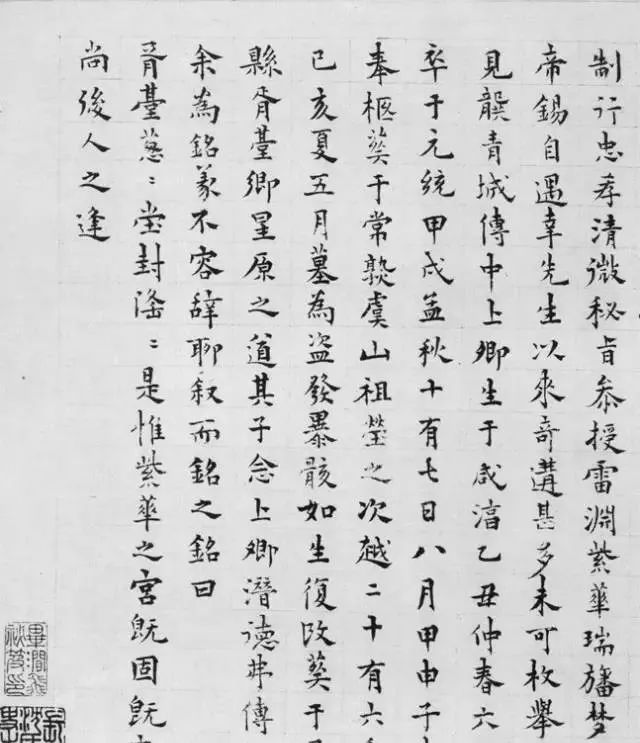 制行忠孝清微秘旨叅授雷淵紫華瑞旛梦
帝錫自遇幸先生以來奇遘甚多未可枚舉
見龔青城傳中上卿生于咸淳乙丑仲春六
卒于元統甲戌孟秋十有七日八月甲申子
奉柩葬于常熟虞山祖塋之次越二十有六
己亥夏五月墓為盜發暴骸如生復改葬于
縣胥臺鄉星原之道其子念上卿潛德弗傳
余為銘義不容辭聊叙而銘之銘曰
胥臺蔥〻堂封滃〻是惟紫華之宮既固既
尚後人之逢
畢澗飛
祕笈印